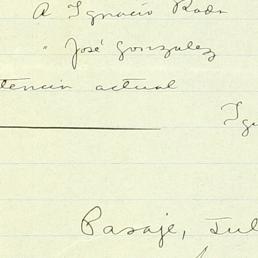 A Ignacio Roda
" José Gonzalez
tencia actual
Igu
Pasaje, Jul